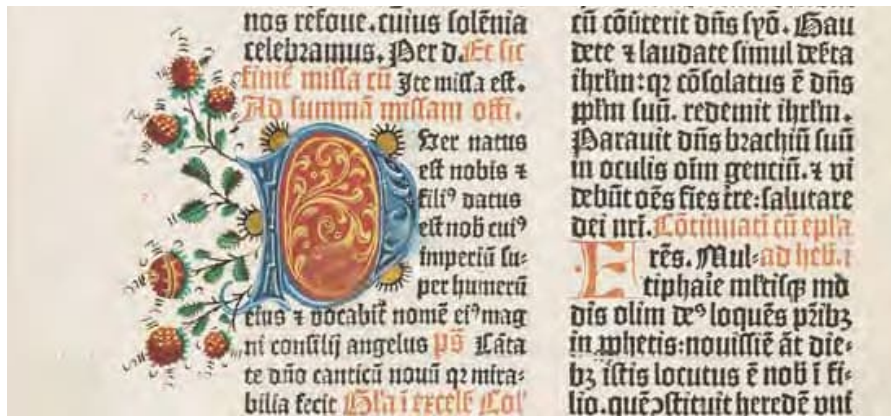 nos refoue. cuius solēnia
celebramus, Per d. Et sic
finiē missa cū Ite missa est.
Ad summā missam offi.
Puer natus
est nobis ⁊
filiꝰ datus
est nob cuiꝰ
imperiū su⸗
per humerū
eius ⁊ vocabiť nomē eiꝰ mag
ni consilij angelus ps̄ Cāta
te dño canticū novū qꝛ mira⸗
bilia fecit Gl̄a ī excels̄ Col̄
cū cōuterit dn̄s syō. Gau
dete ⁊ laudate simul deſ̄ta
ihrl̄m: qꝛ cōsolatus ē dn̄s
ppl̄m suū. redemit ihrl̄m.
Parauit dn̄s brachiū suū
in oculis oīm genciū. ⁊ vi
debūt oēs fies tre: salutare
dei nr̄i. Cōtinuatī cū epl̄a
Erēs. Mul⸗ ad heb. i
tiphaīe mītisqꝫ mo
dis olim deꝰ loquēs pr̄ibꝫ
in ꝓphetis: nouissīē āt die⸗
bꝫ istis locutus ē nob ī fi⸗
lio. quē ↄstituit heredē vnī